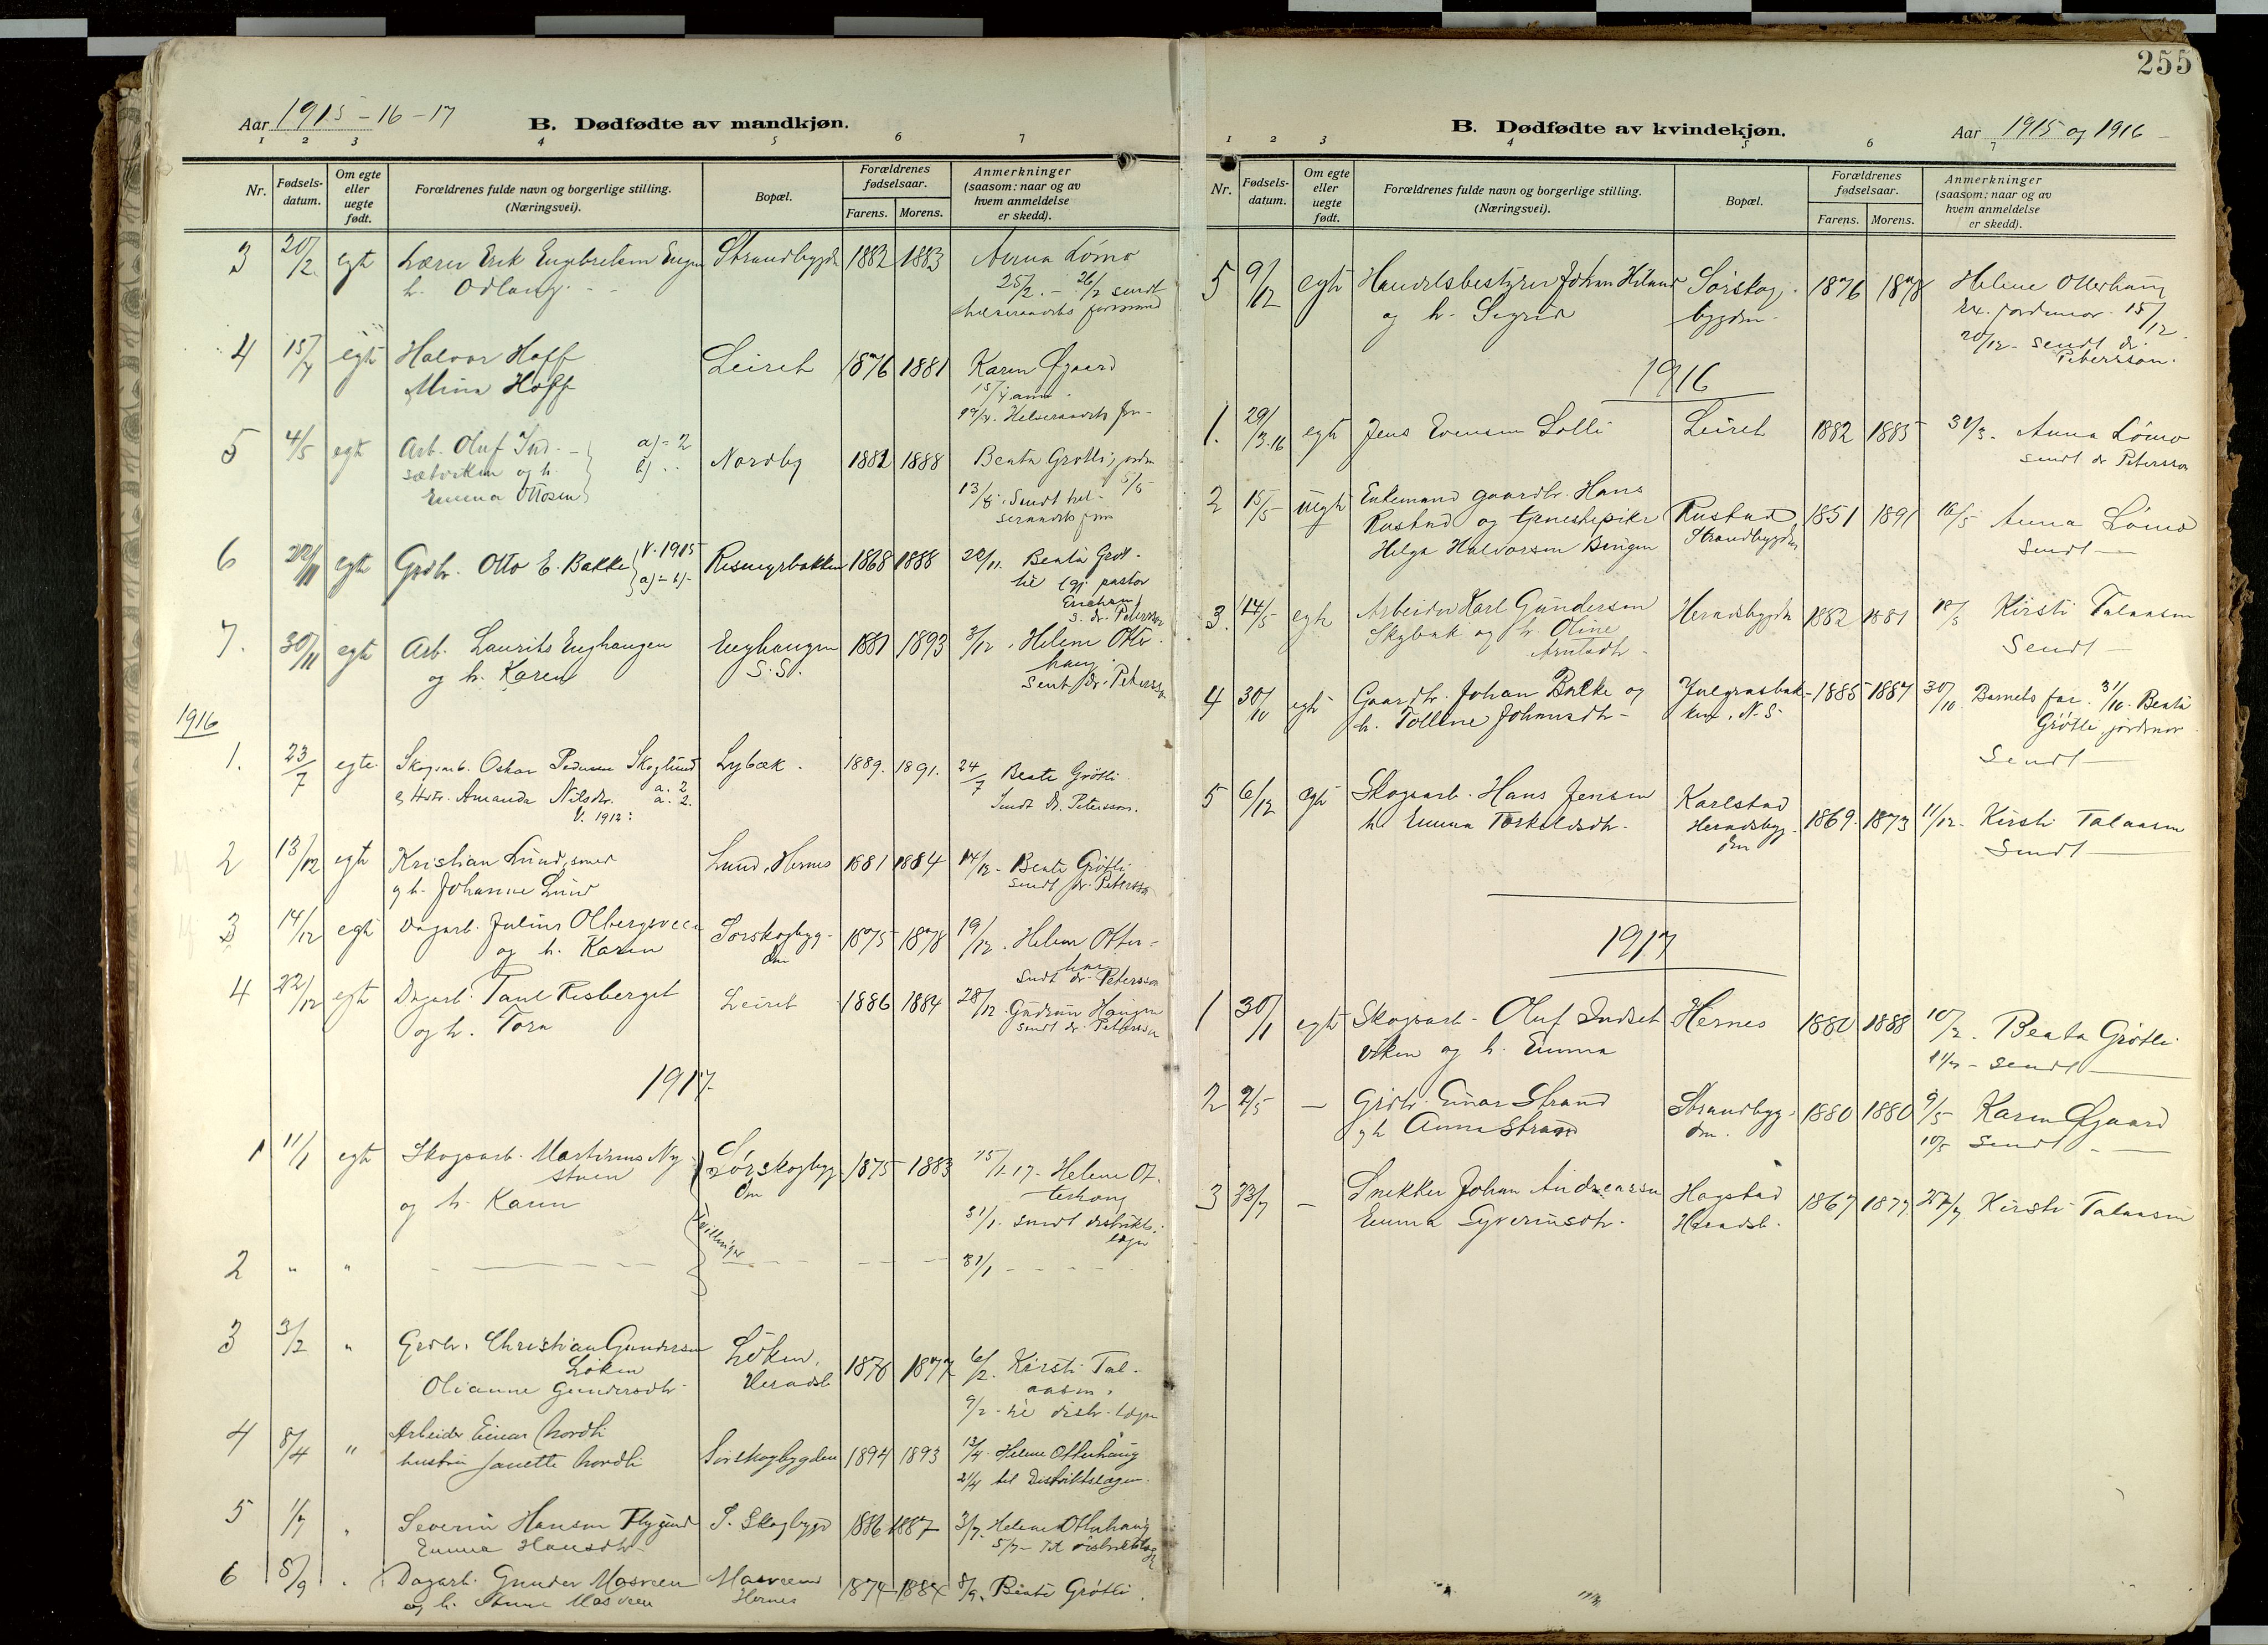 255
Aar 1915-16-17
B. Dødfødte av mandkjøn.
1 2 3 4 5 6 7
Nr.
Fødsels-
datum.
Om egte
eller
uegte
født.
Forældrenes fulde navn og borgerlige stilling.
(Næringsvei).
Bopæl.
Forældrenes
fødselsaar.
Farens. Morens.
Anmerkninger
(saasom: naar og av
hvem anmeldelse
er skedd).
3 20/2 egte Lærer Erik Engebretsen Strandbygda 1882 1883 Anna Lömo
h. 25/2. - 26/2 sendt
4 15/4 egte Halvor Hoff Leiret 1876 1881 Karen Øgaard
Mina Hoff 15/4 anm.
Helseraadets
5 4/5 egte Arb. Oluf Ind- a) = 2 Nordby 1882 1888 Beata Grötli, jordm
sætviken og h. b) ..
Emma Ottosen 13/8. Sendt hel- 5/5
seraadets form
6 22/11 egte Grdbr. Otto E. Bakke V. 1915 Resmyrbakken 1868 1888 22/11. Beata Gröt-
a) = b) - pastor
s. dr. Petersson
7. 30/11 egte Arb. Laurits Enghaugen Enghaugen 1881 1893 2/12. Helene Otter-
og h. Karen S.S. haug.
Sent dr. Petersson
1916
1. 23/7 egte Skogsarb. Oskar Pedersen Skoglund Lybæk. 1889. 1891. 24/7 Beate Grötli.
og Hstr. Amanda Nilsdtr. a. 2 a. 2. Sendt Dr. Petersson.
V. 1912:
2 13/12 egte Kristian Lund, smed Lund, Hernes 1881 1884 14/12 - Beate Grötli
og h. Johanne Lund sendt dr. Petersson
3 14/12 egte Dagarb. Julius Olbergsveen Sörskogbyg- 1875 1878 19/12. Helene Otter-
og h. Karen den haug
sendt dr. Petersson
4 22/12 egte Dagarb. Paul Risberget Leiret 1886 1884 28/12 Gudrun Haugen
og h. Tora sendt dr. Petersson
1917
1 11/1 egte Skogsarb. Martinius Ny- Sörskogbyg- 1875 1883 15/1-17- Helene Ot-
stuen den terhaug
og h. Karen 31/1. sendt distrikts-
læge
Tvillinger
2 " " 31/1 - - - -
3 3/2 " Grdbr. Christian Gundersen Löken, 1876 1877 6/2. Kirsti Tal-
Löken Heradsb aasen.
Olianne Gundersdtr 9/2 - til distr. lægen
4 8/4 " Arbeider Einar Nordli
hustru Janette Nordli Sörskogbygden 1894 1893 13/4. Helene Otterhaug
21/4 til Distriktslægen.
5 1/7 " Severin Hansen S. Skogbygd 1886 1887 3/7. Helene Otterhaug
Emma Hansdtr. 5/7 - til
6 8/9 " Dagarb. Gunder Masveen Masveen 1874 1884 8/9. Beate Grötli.
og h. Anne Masveen Hernes
B. Dødfødte av kvindekjøn.
Aar 1915 og 1916
1 2 3 4 5 6 7
Nr.
Fødsels-
datum.
Om egte
eller
uegte
født.
Forældrenes fulde navn og borgerlige stilling.
(Næringsvei).
Bopæl.
Forældrenes
fødselsaar.
Farens. Morens.
Anmerkninger
(saasom: naar og av
hvem anmeldelse
er skedd).
5 9/12 egte Handelsbestyrer Johan Sörskog- 1876 1878 Helene Otterhaug
og h. Sigrid bygden. 15/12
20/12 - sendt dr.
Petersson.
1916
1. 29/3-16 egte Jens Evensen Solli Leiret 1882 1885 31/3. Anna Lömo
sendt dr Petersson
2 15/5 uegte Enkemand gaardbr. Hans
Rustad og tjenestepike Rustad 1851 1891 16/5 Anna Lömo
Helga Halvorsen Bingen Strandbygden Sendt —
3. 14/5 egte Arbeider Karl Gundersen Heradsbygden 1882 1881 18/5 Kirsti Talaasen
Skybak og h. Oline Sendt —
4 30/10 egte Gaardbr. Johan Bakke og 1885 1887 30/10. Barnets far. 31/10. Beata
h. Tolline Johansdtr - ken, N.S. Grötli, jordmor.
Sendt —
5 6/12 egte Skogsarb. Hans Jensen Karlstad 1869. 1873 11/12 - Kirsti Talaasen
h. Emma Torkildsdtr. Heradsbyg- Sendt —
den
1917
1 30/1 egte Skogsarb - Oluf Indset- Hernes 1880 1888 10/2. Beata Grötli
viken og h. Emma 11/2 - sendt —
2 2/5 — Grdbr. Einar Strand Strandbyg- 1880 1880 9/5 Karen Øgaard
og h Anna Strand den. 10/5 sendt —
3 23/7 — Snekker Johan Andreassen Hagstad 1867 1877 Kirsti Talaasen
Emma Syverinsdtr. Heradsb.